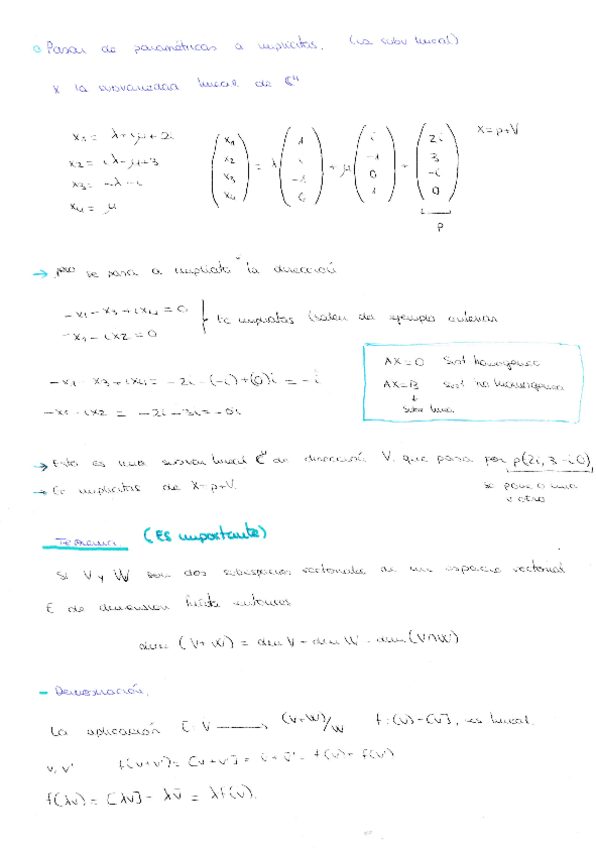 o Pasar de paramétricas a implícitas. (la subv lineal)
X la subvariedad lineal de ℂ⁴
x₁ = λ+iμ+2i
x₂ = iλ-μ+3
x₃ = -λ-i
x₄ = μ
(x₁ x₂ x₃ x₄) = λ (1 i -1 0) + μ (i -1 0 1) + (2i 3 -i 0)
X=p+V
p
→ se pasa a implícita la dirección
-x₁-x₃+ix₄=0
-x₁-ix₂=0
Ec implícitas (salen del ejemplo anterior
AX=0 Sist homogéneo
AX=B sist no homogéneo
↓
subv lineal
-x₁-x₃+ix₄ = -2i-(-i)+(0)i = -i
-x₁-ix₂ = -2i-3i=-5i
→ Esto es una subvar lineal ℂ⁴ de dirección V. que pasa por p(2i, 3 -i 0),
→ Ec implícitas de X=p+V.
se pasa a una
Teorema. (Es importante)
Si V y W son dos subespacios vectoriales de un espacio vectorial
E de dimensión finita entonces
dim (V+W) = dim V - dim W - dim (V∩W)
- Demostración.
La aplicación f: V → (V+W)/W f:(v)-[v], es lineal.
v, v' f(v+v')= [v+v'] = v̄ + v̄' = f(v)+f(v')
f(λv)= [λv] - λv̄ = λf(v).